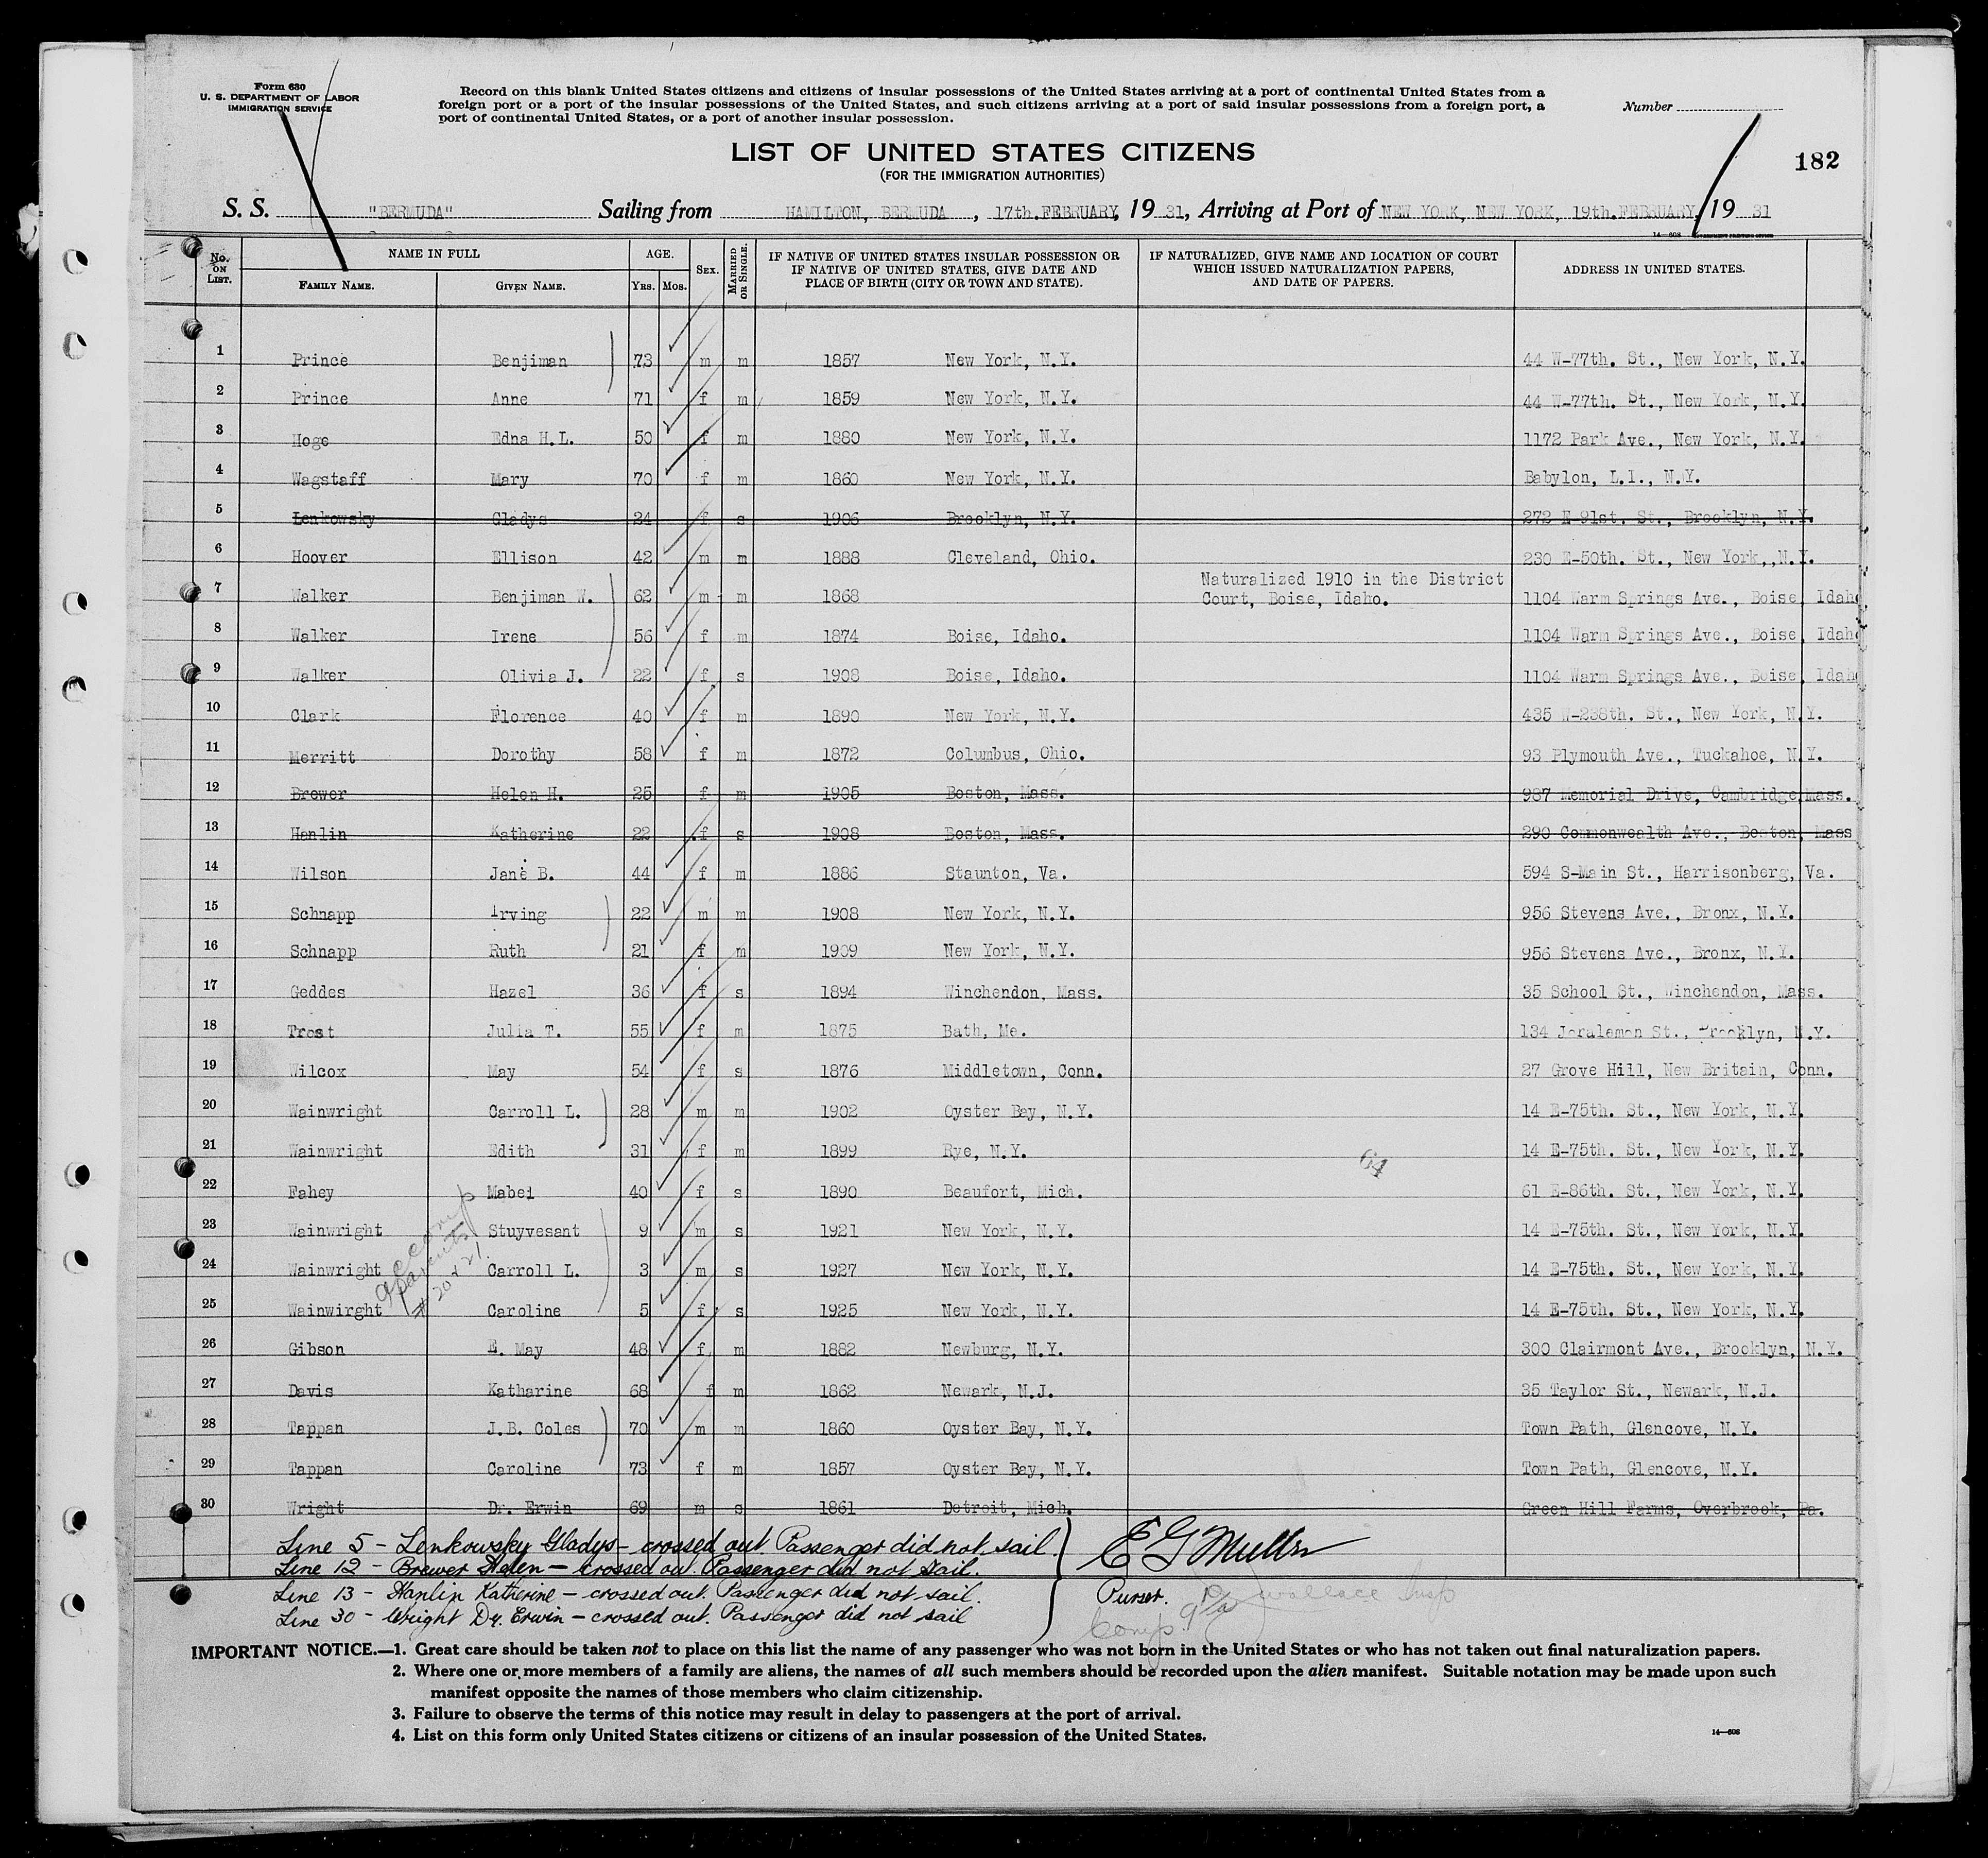 Form 630
U. S. DEPARTMENT OF LABOR
IMMIGRATION SERVICE
Record on this blank United States citizens and citizens of insular possessions of the United States arriving at a port of continental United States from a
foreign port or a port of the insular possessions of the United States, and such citizens arriving at a port of said insular possessions from a foreign port, a
port of continental United States, or a port of another insular possession.
Number
182
LIST OF UNITED STATES CITIZENS
(FOR THE IMMIGRATION AUTHORITIES)
S. S. "BERMUDA" Sailing from HAMILTON, BERMUDA, 17th. FEBRUARY, 1931, Arriving at Port of NEW YORK, NEW YORK, 19th. FEBRUARY, 1931
14—608 GOVERNMENT PRINTING OFFICE
No. ON LIST. NAME IN FULL AGE. SEX. MARRIED OR SINGLE. IF NATIVE OF UNITED STATES INSULAR POSSESSION OR IF NATIVE OF UNITED STATES, GIVE DATE AND PLACE OF BIRTH (CITY OR TOWN AND STATE). IF NATURALIZED, GIVE NAME AND LOCATION OF COURT WHICH ISSUED NATURALIZATION PAPERS, AND DATE OF PAPERS. ADDRESS IN UNITED STATES.
FAMILY NAME. GIVEN NAME. YRS. MOS.
1 Prince Benjiman 73 m m 1857 New York, N.Y. 44 W-77th. St., New York, N.Y.
2 Prince Anne 71 f m 1859 New York, N.Y. 44 W-77th. St., New York, N.Y.
3 Hoge Edna H.L. 50 f m 1880 New York, N.Y. 1172 Park Ave., New York, N.Y.
4 Wagstaff Mary 70 f m 1860 New York, N.Y. Babylon, L.I., N.Y.
5 Lenkowsky Gladys 24 f s 1906 Brooklyn, N.Y. 272 E-91st. St., Brooklyn, N.Y.
6 Hoover Ellison 42 m m 1888 Cleveland, Ohio. 230 E-50th. St., New York,,N.Y.
7 Walker Benjiman W. 62 m m 1868 Naturalized 1910 in the District Court, Boise, Idaho. 1104 Warm Springs Ave., Boise, Idaho
8 Walker Irene 56 f m 1874 Boise, Idaho. 1104 Warm Springs Ave., Boise, Idaho
9 Walker Olivia J. 22 f s 1908 Boise, Idaho. 1104 Warm Springs Ave., Boise, Idaho
10 Clark Florence 40 f m 1890 New York, N.Y. 435 W-238th. St., New York, N.Y.
11 Merritt Dorothy 58 f m 1872 Columbus, Ohio. 93 Plymouth Ave., Tuckahoe, N.Y.
12 Brewer Helen H. 25 f m 1905 Boston, Mass. 987 Memorial Drive, Cambridge, Mass.
13 Hanlin Katherine 22 f s 1908 Boston, Mass. 290 Commonwealth Ave., Boston, Mass
14 Wilson Jane B. 44 f m 1886 Staunton, Va. 594 S-Main St., Harrisonberg, Va.
15 Schnapp Irving 22 m m 1908 New York, N.Y. 956 Stevens Ave., Bronx, N.Y.
16 Schnapp Ruth 21 f m 1909 New York, N.Y. 956 Stevens Ave., Bronx, N.Y.
17 Geddes Hazel 36 f s 1894 Winchendon, Mass. 35 School St., Winchendon, Mass.
18 Trost Julia T. 55 f m 1875 Bath, Me. 134 Joralemon St., Brooklyn, N.Y.
19 Wilcox May 54 f s 1876 Middletown, Conn. 27 Grove Hill, New Britain, Conn.
20 Wainwright Carroll L. 28 m m 1902 Oyster Bay, N.Y. 14 E-75th. St., New York, N.Y.
21 Wainwright Edith 31 f m 1899 Rye, N.Y. 14 E-75th. St., New York, N.Y.
64
22 Fahey Mabel 40 f s 1890 Beaufort, Mich. 61 E-86th. St., New York, N.Y.
23 Wainwright Stuyvesant 9 m s 1921 New York, N.Y. 14 E-75th. St., New York, N.Y.
24 Wainwright Carroll L. 3 m s 1927 New York, N.Y. 14 E-75th. St., New York, N.Y.
25 Wainwirght Caroline 5 f s 1925 New York, N.Y. 14 E-75th. St., New York, N.Y.
accomp
parents
# 20+21.
26 Gibson E. May 48 f m 1882 Newburg, N.Y. 300 Clairmont Ave., Brooklyn, N.Y.
27 Davis Katharine 68 f m 1862 Newark, N.J. 35 Taylor St., Newark, N.J.
28 Tappan J.B. Coles 70 m m 1860 Oyster Bay, N.Y. Town Path, Glencove, N.Y.
29 Tappan Caroline 73 f m 1857 Oyster Bay, N.Y. Town Path, Glencove, N.Y.
30 Wright Dr. Erwin 69 m s 1861 Detroit, Mich. Green Hill Farms, Overbrook, Pa.
Line 5 - Lenkowsky Gladys - crossed out. Passenger did not sail.
Line 12 - Brewer Helen - crossed out. Passenger did not sail.
Line 13 - Hanlin Katherine - crossed out. Passenger did not sail.
Line 30 - Wright Dr. Erwin - crossed out. Passenger did not sail
E G Mullin
Purser.
Wallace Insp
Comp.
IMPORTANT NOTICE.—1. Great care should be taken not to place on this list the name of any passenger who was not born in the United States or who has not taken out final naturalization papers.
2. Where one or more members of a family are aliens, the names of all such members should be recorded upon the alien manifest. Suitable notation may be made upon such
manifest opposite the names of those members who claim citizenship.
3. Failure to observe the terms of this notice may result in delay to passengers at the port of arrival.
4. List on this form only United States citizens or citizens of an insular possession of the United States.
14—608